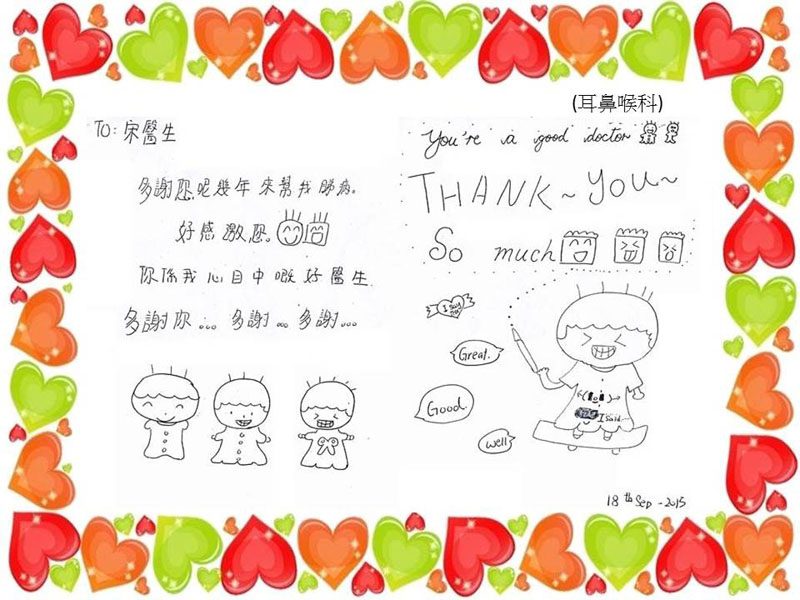 TO: 宋醫生
多謝您呢幾年來幫我睇病。
好感激您。
你係我心目中嘅好醫生
多謝你... 多謝... 多謝...
(耳鼻喉科)
You're a good doctor
THANK~YOU~
So much
Great.
Good.
Well
I said..
18th Sep - 2015